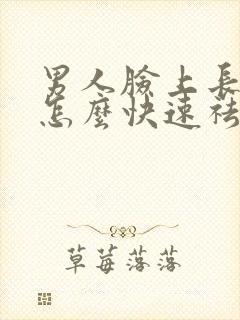 男人臉上長
怎麼快速祛
草莓落落